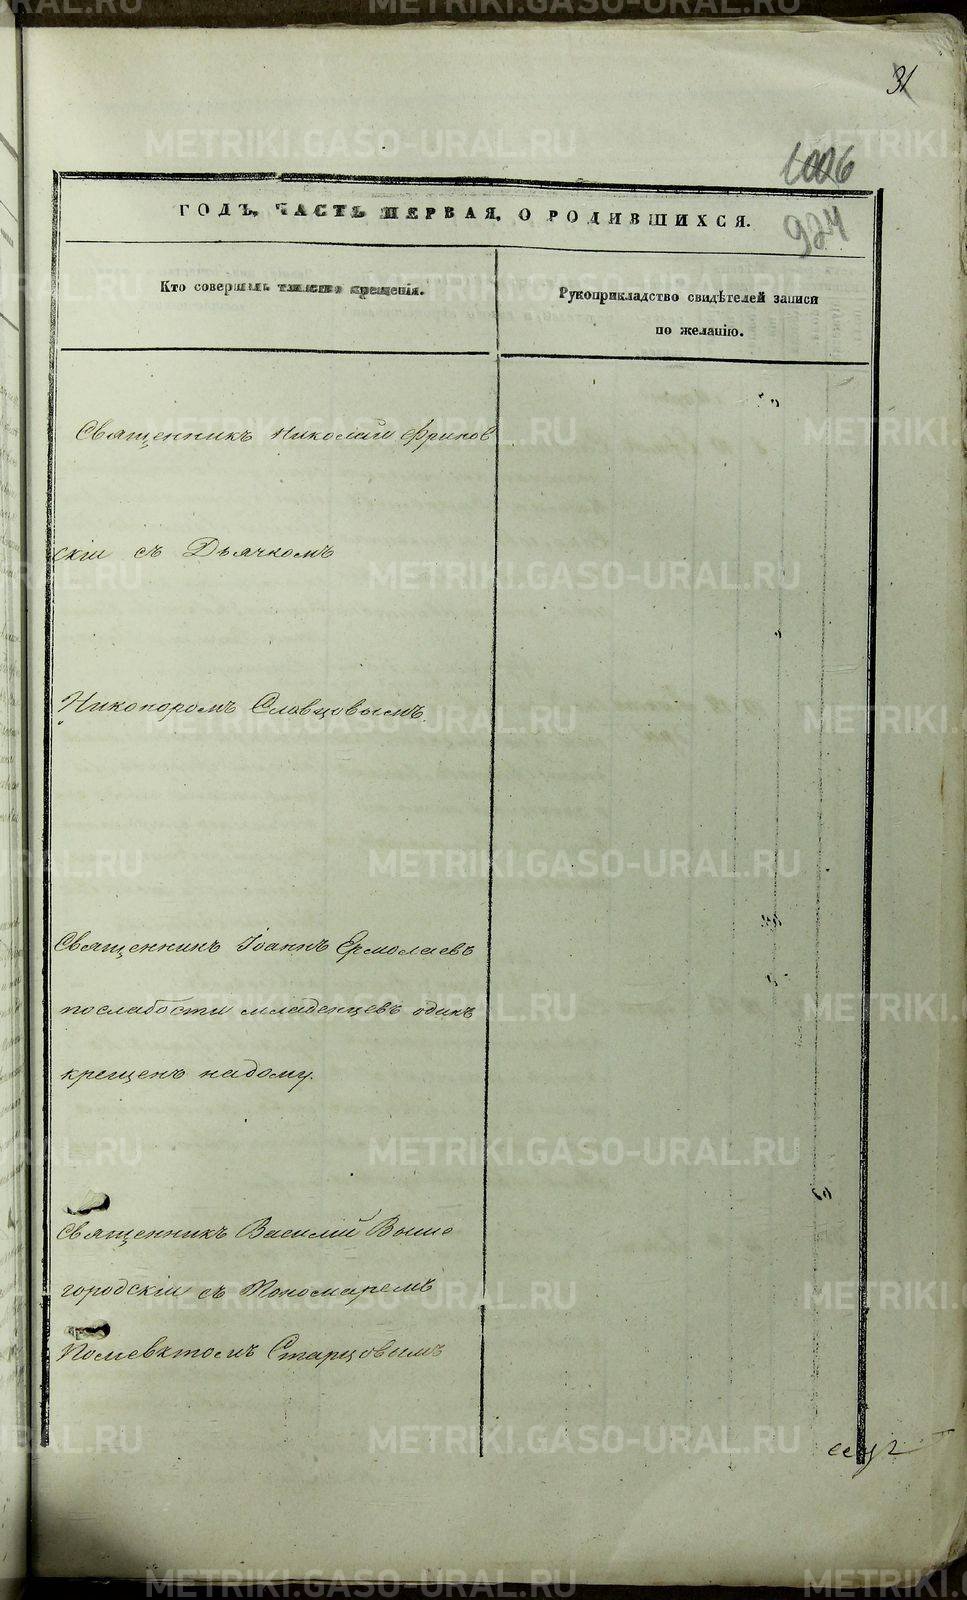 31
1006
984
ГОДЪ, ЧАСТЬ ПЕРВАЯ, О РОДИВШИХСЯ.
Кто совершалъ таинство крещенія.
Рукоприкладство свидѣтелей записи
по желанію.
Священникъ Николай Фринов
скій съ Дьячкомъ
Никоноромъ Словцовымъ.
Священникъ Іоаннъ Ермолаевъ
послабости младенцевъ одинъ
крещенъ надому.
Священникъ Василій Выше
городскій съ Пономаремъ
Полиевктомъ Старцовымъ
METRIKI.GASO-URAL.RU